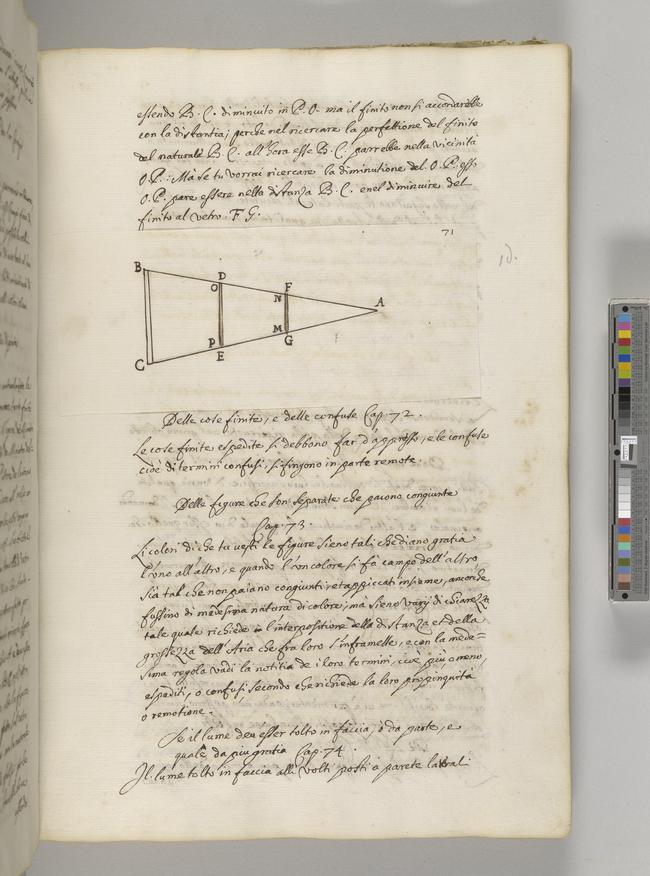 essendo B. C. diminuito in P. O. ma il finito non si accordarebbe
con la distantia; perche nel ricercare la perfettione del finito
del naturale B. C. all'hora esse B. C. parrebbe nella vicinità
O. P.: Ma se tu vorrai ricercare la diminutione del O. P. esso
O. P. pare essere nella distanza B. C. e nel diminuire del
finito al vetro F. G.
71
B
D
O
F
N
A
P
M
C
E
G
Delle cose finite, e delle confuse Cap. 72.
Le cose finite espedite si debbono far d'appresso, e le confuse
cioè di termini confusi, si fingono in parte remote.
Delle figure che son separate che paiono congiunte
Cap. 73.
Li colori di che tu vesti le figure sieno tali che diano gratia
l'uno all'altro, e quando l'un colore si fà campo dell'altro
sia tal che non paiano congiunti, et appiccati insieme, ancorche
fussino di medesma natura di colore, ma sieno varij di chiarezza
tale quale richiede l'interpositione della distanza et della
grossezza dell'Aria che fra loro s'inframette, e con la mede=
sima regola vadi la notitia de i loro termini, cioè più o meno,
espediti, o confusi secondo che richiede la loro propinquità
o remotione.
Se il lume deu esser tolto in faccia, ò da parte, e
quale da piu gratia Cap. 74.
Il lume tolto in faccia alli Volti posti a parete laterali